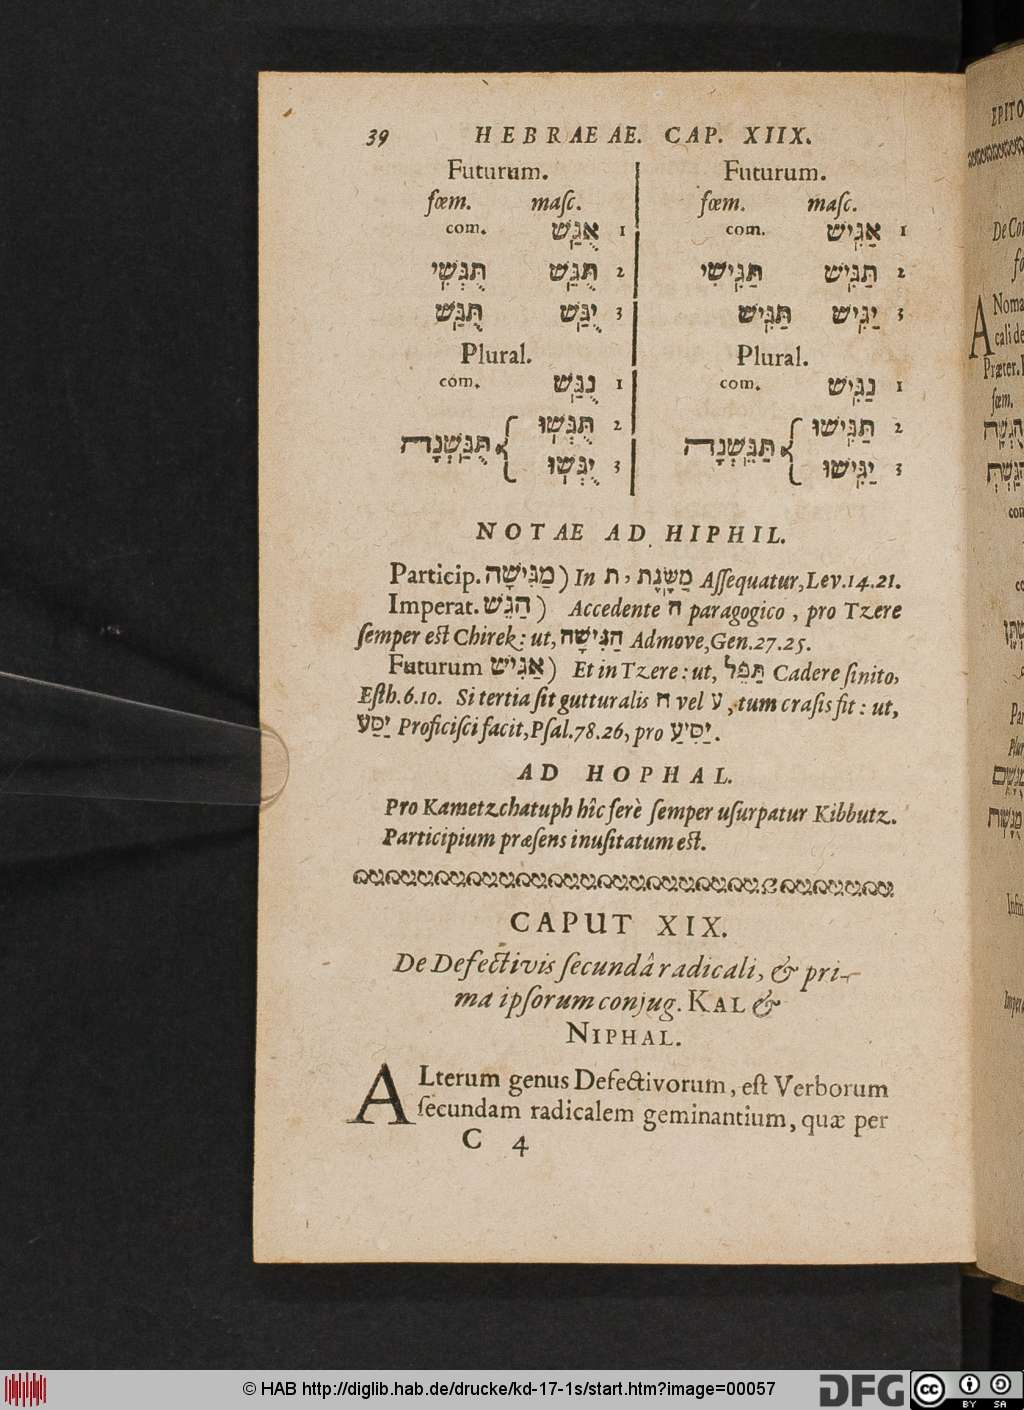 39 HEBRAEAE. CAP. XIIX.
Futurum. Futurum.
fœm. maſc. fœm. maſc.
com. אֻגַּשׁ 1 com. אַגִּישׁ 1
תֻּגְּשִׁי תֻּגַּשׁ 2 תַּגִּישִׁי תַּגִּישׁ 2
תֻּגַּשׁ יֻגַּשׁ 3 תַּגִּישׁ יַגִּישׁ 3
Plural. Plural.
com. נֻגַּשׁ 1 com. נַגִּישׁ 1
תֻּגְּשׁוּ 2 תַּגִּישׁוּ 2
תֻּגַּשְׁנָה { תַּגֵּשְׁנָה {
יֻגְּשׁוּ 3 יַגִּישׁוּ 3
NOTAE AD HIPHIL.
Particip. מַגִּישָׁה) In ת, מַשֶּׂגֶת Aſſequatur, Lev. 14. 21.
Imperat. הַגֵּשׁ) Accedente ה paragogico, pro Tzere
ſemper eſt Chirek: ut, הַגִּישָׁה Admove, Gen. 27. 25.
Futurum אַגִּישׁ) Et in Tzere: ut, תַּפֵּל Cadere ſinito,
Eſth. 6. 10. Si tertia ſit gutturalis ח vel ע, tum craſis fit: ut,
יַסַּע Proficiſci facit, Pſal. 78. 26, pro יַסִּיעַ.
AD HOPHAL.
Pro Kametzchatuph hîc ferè ſemper uſurpatur Kibbutz.
Participium præſens inuſitatum eſt.
CAPUT XIX.
De Defectivis ſecundâ radicali, & pri-
ma ipſorum conjug. KAL &
NIPHAL.
ALterum genus Defectivorum, eſt Verborum
ſecundam radicalem geminantium, quæ per
C 4
EPITO
De Co
A Noma
cali de
Præter.
fœm.
Par
Plur
Infin
Imper
© HAB http://diglib.hab.de/drucke/kd-17-1s/start.htm?image=00057
DFG
cc BY SA